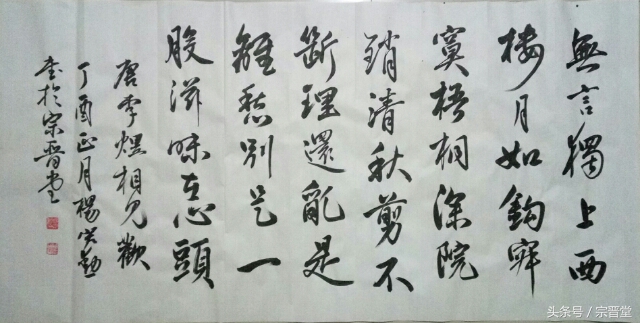 無言獨上西
樓月如鉤寂
寞梧桐深院
鎖清秋剪不
斷理還亂是
離愁別是一
般滋味在心頭
唐李煜相見歡
丁酉正月楊
書於宗晉堂
头条号/宗晋堂